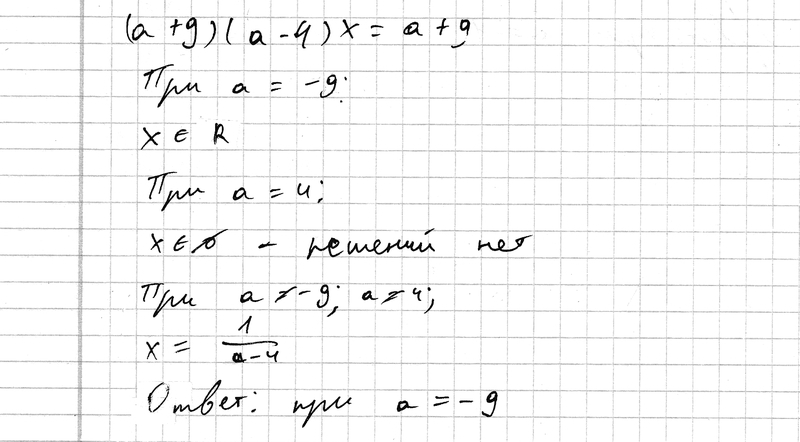 (a + 9)(a - 4) x = a + 9
При a = -9:
x ∈ R
При a = 4:
x ∈ ∅ - решений нет
При a ≠ -9; a ≠ 4;
x = 1/(a-4)
Ответ: при a = -9